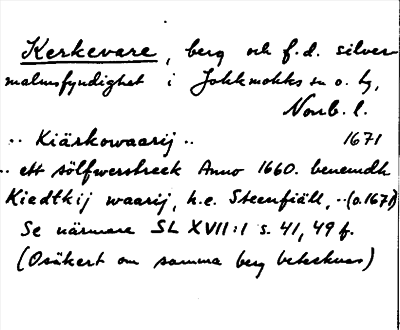 Kerkevare, berg och f.d. silver-
malmsfyndighet i Jokkmokks sn o. tg,
Norrb. l.
.. Kiärkowaarij .. 1671
.. ett sölfwerstreek Anno 1660. benemdh
Kiedtkij waarij, h.e. Steenfiäll, .. (o.1671)
Se närmare SL XVII:1 s. 41, 49 f.
(Osäkert om samma berg betecknas)